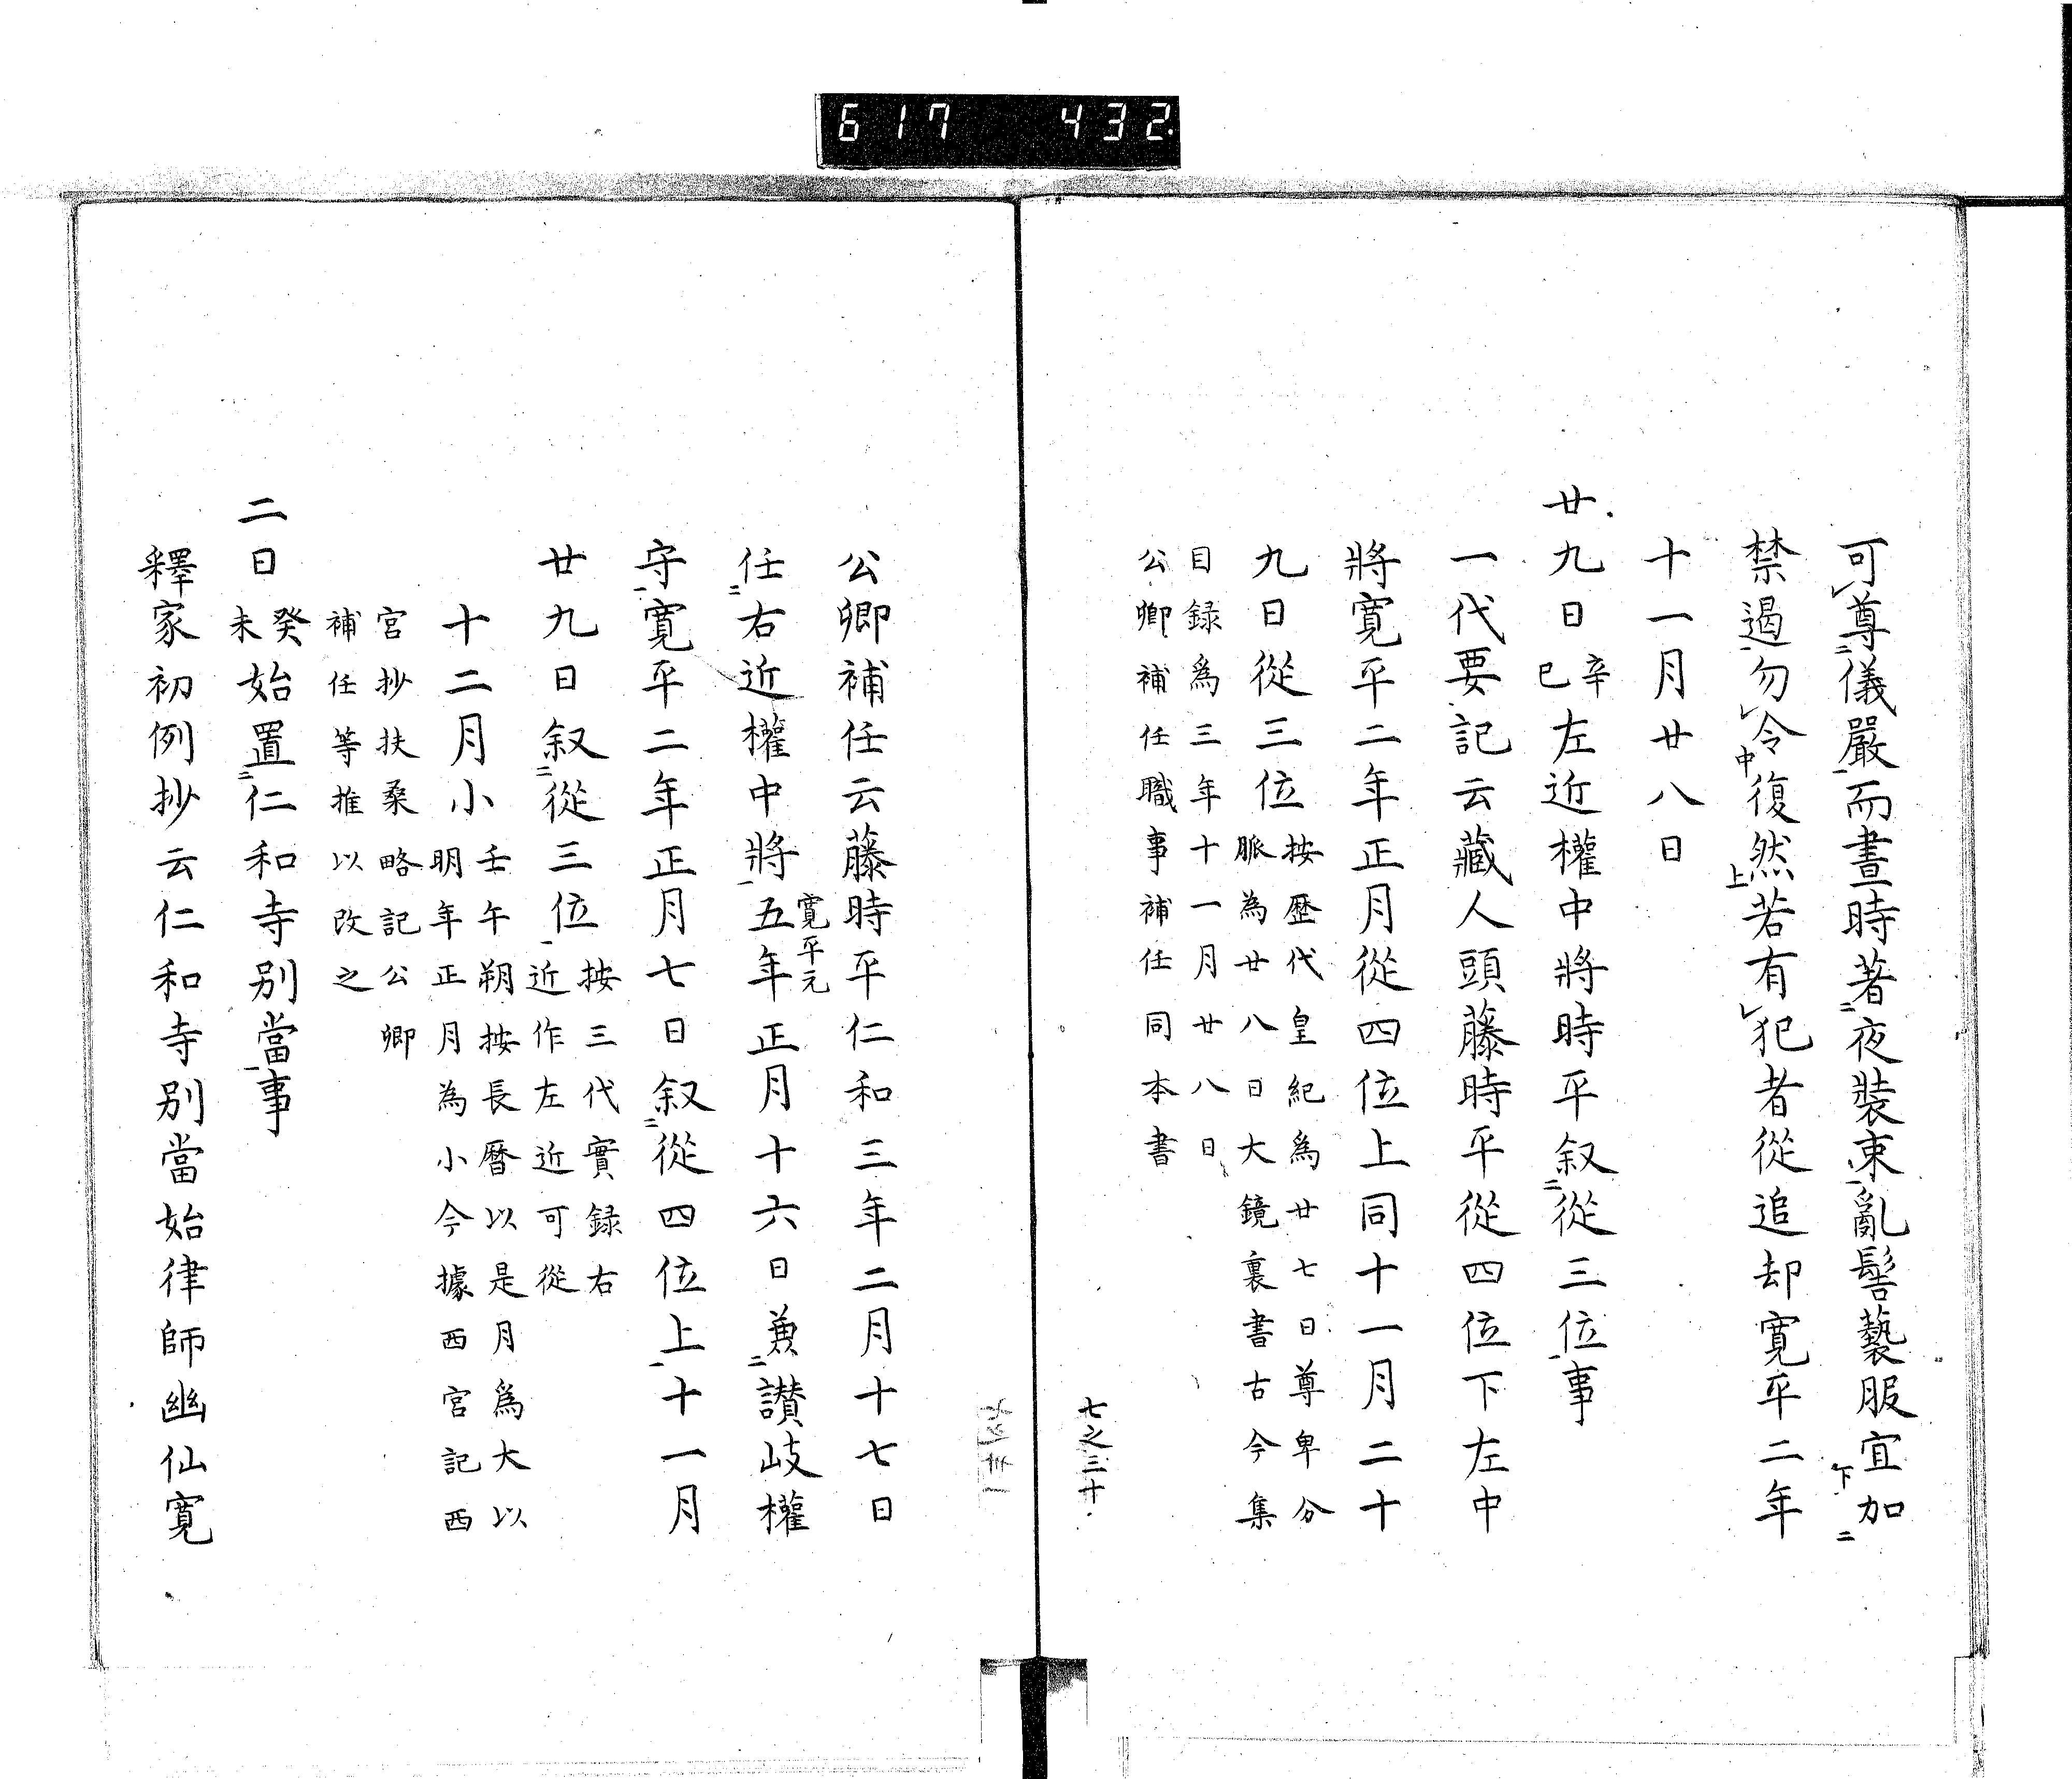 617 432
可尊儀嚴而晝時著夜裝束亂髻藝服宜加
禁遏勿令復然若有犯者從追却寛平二年
十一月廿八日
廿九日辛巳左近權中將時平叙從三位事
一代要記云藏人頭藤時平從四位下左中
將寛平二年正月從四位上同十一月二十
九日從三位按歷代皇紀爲廿七日尊卑分
脈為廿八日大鏡裏書古今集
目録爲三年十一月廿八日
公卿補任職事補任同本書
七之三十
公卿補任云藤時平仁和三年二月十七日
任右近權中將寛平元五年正月十六日兼讃岐權
守寛平二年正月七日叙從四位上十一月
廿九日叙從三位按三代實録右
近作左近可從
十二月小壬午朔按長曆以是月爲大以
明年正月為小今據西宮記西
宮抄扶桑略記公卿
補任等推以改之
二日癸未始置仁和寺別當事
釋家初例抄云仁和寺別當始律師幽仙寛